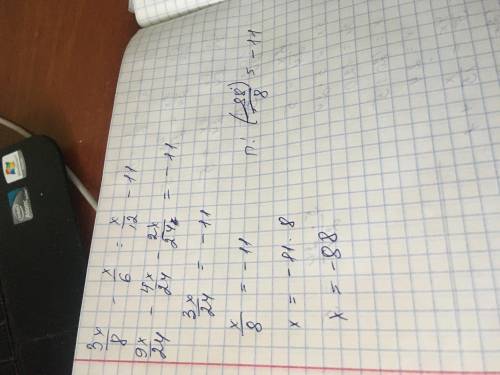 3x/8 - x/6 = x/12 - 11
9x/24 - 4x/24 - 2x/24 = -11
3x/24 = -11
x/8 = -11
x = -11 · 8
x = -88
п: (-88)/8 = -11
intel